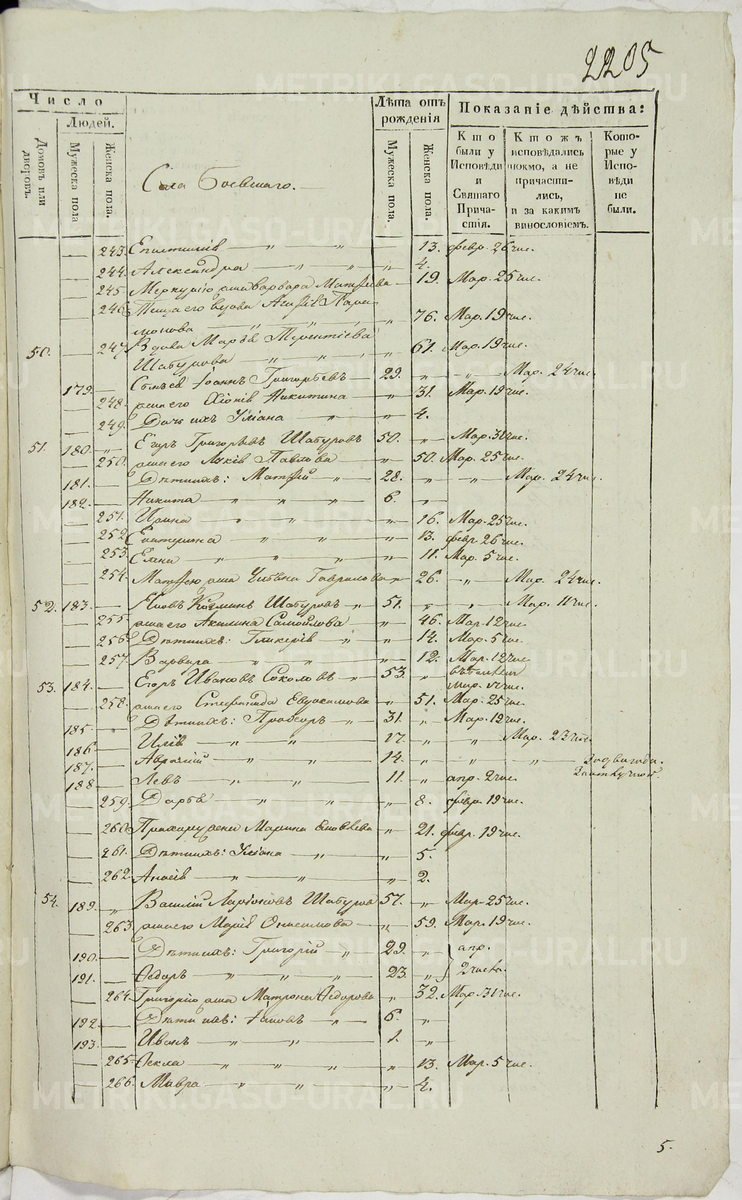 2205
Число
Людей.
Домовъ или дворовъ.
Мужеска пола
Женска пола.
Лѣта отъ рожденія
Мужеска пола.
Женска пола.
Показаніе дѣйства:
Кто были у Исповѣди и Святаго Причастія.
Кто жъ исповѣдались токмо, а не причастились, и за какимъ винословіемъ.
Которые у Исповѣди не были.
Села Боевскаго.
243. " " 13. февр. 26 чис.
244. Александра " " " 4.
245 Меркурію жена Варвара Матѳѣева 19. Мар. 25 чис.
246 вдова Агафія Пара-
монова " " " 76. Мар. 19 чис.
50. 247 Вдова Марѳа Терентіева
Шабурова " " " 61. Мар. 19 чис.
179. Іоаннъ Григорьевъ 29. " " Мар. 24 чис.
248. жена его Хіонія Никитина " 31. Мар. 19 чис.
249. Дочь ихъ Уліана " " 4.
51. 180. " Егоръ Григорьевъ Шабуровъ 50. " Мар. 30 чис.
250. жена его Лукія Павлова " 50. Мар. 25 чис.
181. Дѣти ихъ: Матѳій " 28. " " Мар. 24 чис.
182. Никита " " 6. "
251. Ирина " " " 16. Мар. 25 чис.
252 Екатерина " " " 13. февр. 26 чис.
253. Елена " " " 11. Мар. 5 чис.
254. Матѳею жена Гаврилова " 26. " Мар. 24 чис.
52. 183. Іаковъ Козминъ Шабуровъ " 51. " " Мар. 11 чис.
255 жена его Акилина Самойлова " 46. Мар. 12 чис.
256 Дѣти ихъ: Гликерія " " 14. Мар. 5 чис.
257. Варвара " " " 12. Мар. 12 чис.
53. 184. Егоръ Ивановъ Соколовъ " 53. "
258. жена его Степанида Евдокимова " 51. Мар. 25 чис.
185. Дѣти ихъ: Прохоръ " 31. " Мар. 12 чис.
186. Илія " " 17. " " Мар. 23 чис.
187. Авраамій " " 14. " " "
188. Левъ " " 11. " апр. 2 чис.
259. Дарья " " " 8. февр. 19 чис.
260. Прохору жена Марина " 21. февр. 19 чис.
261. Дѣти ихъ: Уліана " " 5.
262. Анасія " " 2.
54. 189. " Василій Ларіоновъ Шабуровъ 57. " Мар. 25 чис.
263. жена его Марія Онисимова " 59. Мар. 19 чис.
190. Дѣти ихъ: Григорій " 29. " апр.
191. Ѳедоръ " " 23. " 2 числа.
264. Григорію жена Матрона Ѳедорова " 32. Мар. 31 чис.
192. Дѣти ихъ: Іаковъ " 6. "
193. Иванъ " " 1. "
265. Ѳекла " " " 13. Мар. 5 чис.
266. Мавра " " " 4.
5.
METRIKI.GASO-URAL.RU